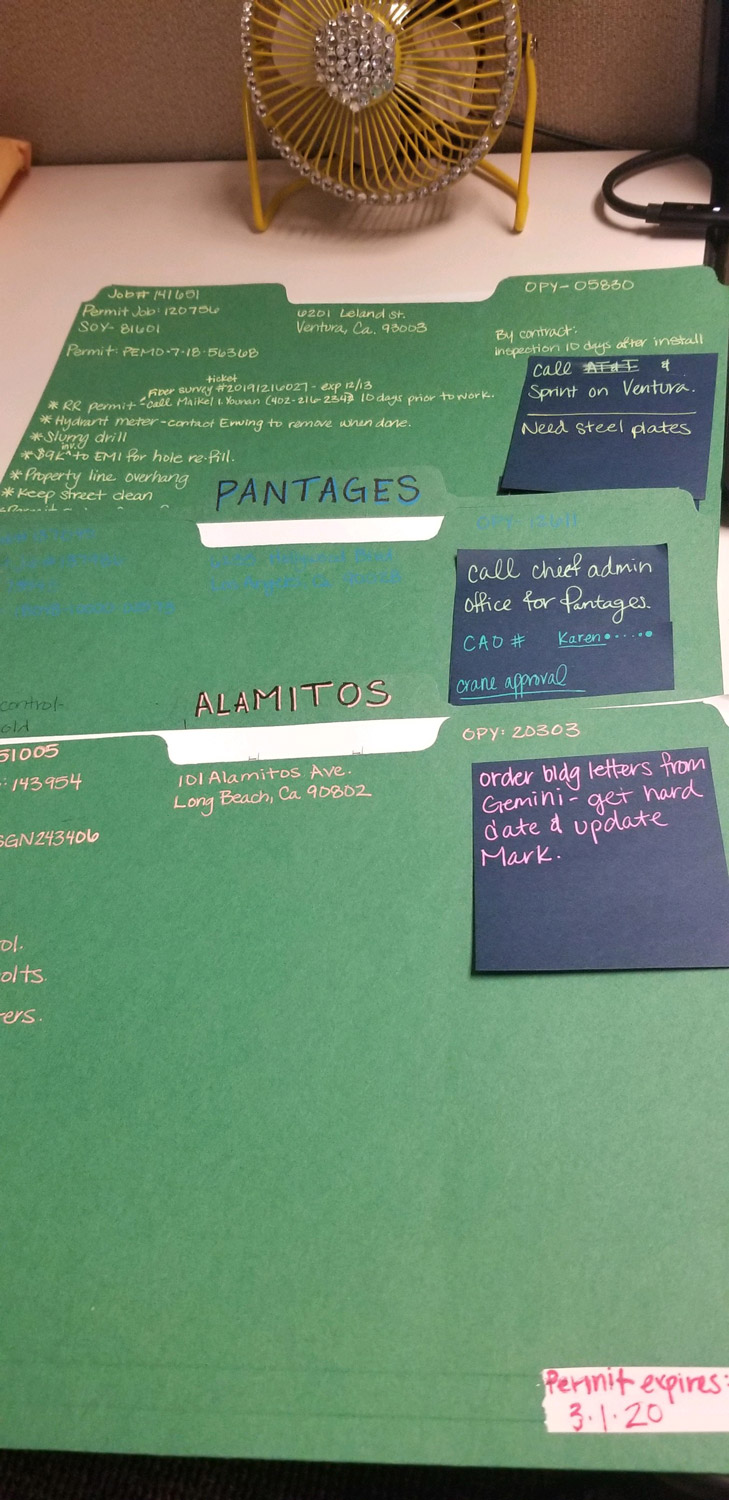 Job# 141651
Permit Job: 120756
SOY- 81601
Permit: PEMD-7-18-56368
6201 Leland St.
Ventura, Ca. 93003
OPY- 05830
By contract:
inspection 10 days after install
ticket
Fiber survey #2019121602 - exp 12/13
* RR permit - call Maikel 10 days prior to work.
* Hydrant meter - contact Erwing to remove when done.
* Slurry drill
inv.
* $9K^ to EMI for hole re-fill.
* Property line overhang
* Keep street clean
call AT&T &
Sprint on Ventura.
Need steel plates
PANTAGES
OPY:
Hollywood Blvd
Los Angeles, Ca
control-
old
call chief admin
office for Pantages.
CAO # Karen
crane approval
ALAMITOS
51005
: 143954
SGN243406
101 Alamitos Ave.
Long Beach, Ca 90802
OPY: 20303
order bldg letters from
Gemini - get hard
date & update
Mark.
ol.
olts.
ers.
Permit expires:
3.1.20